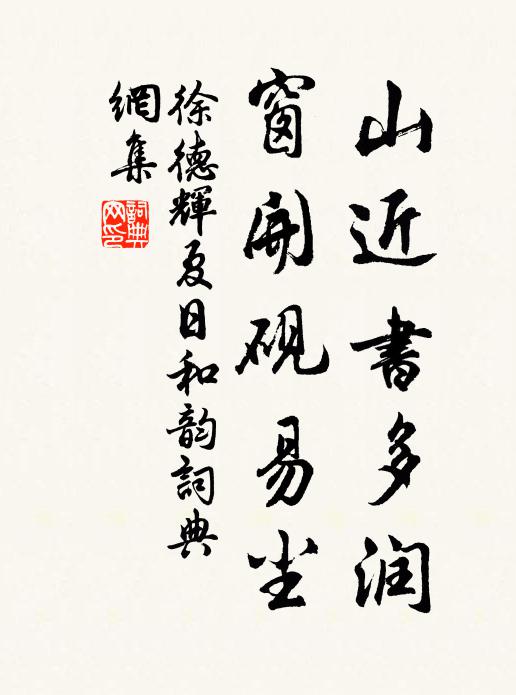 山近書多润
窗開硯易尘
徐德輝夏日和韵詞典
網集
詞典網印